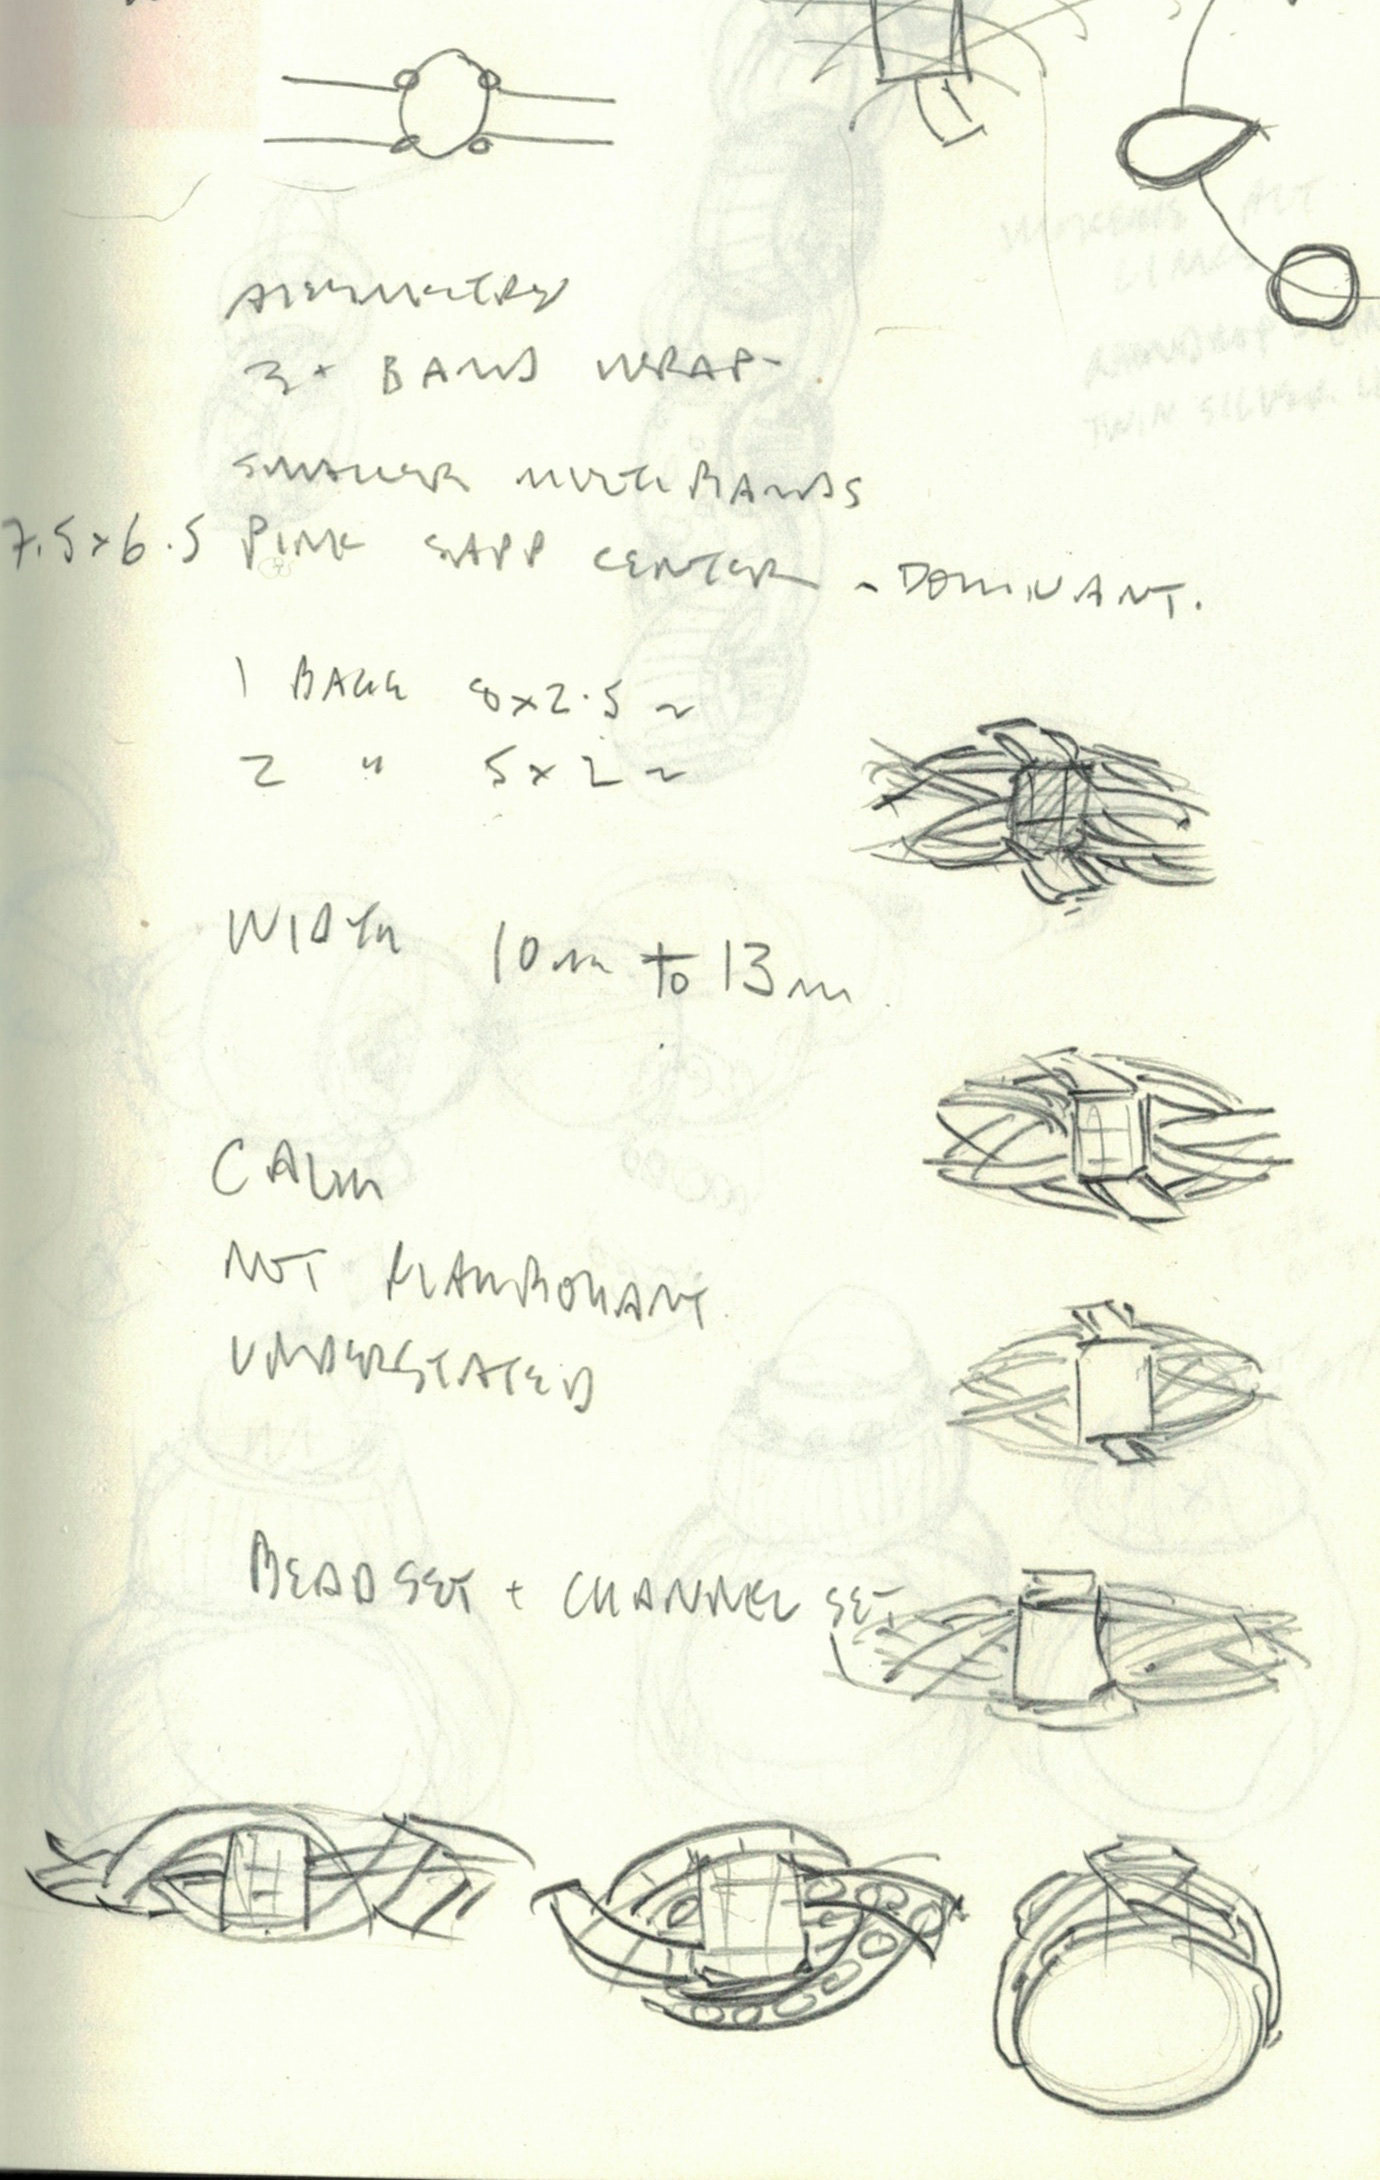 ASYMMETRY
3+ BAND WRAP-
SMALLER MULTI BANDS
7.5x6.5 PINK SAPP CENTER - DOMINANT.
1 BAGU 8x2.5 ~
2 " 5x2 ~
WIDTH 10m to 13m
CALM
NOT FLAMBOUANT
UNDERSTATED
BEAD SET + CHANNEL SET
TWIN SILVER